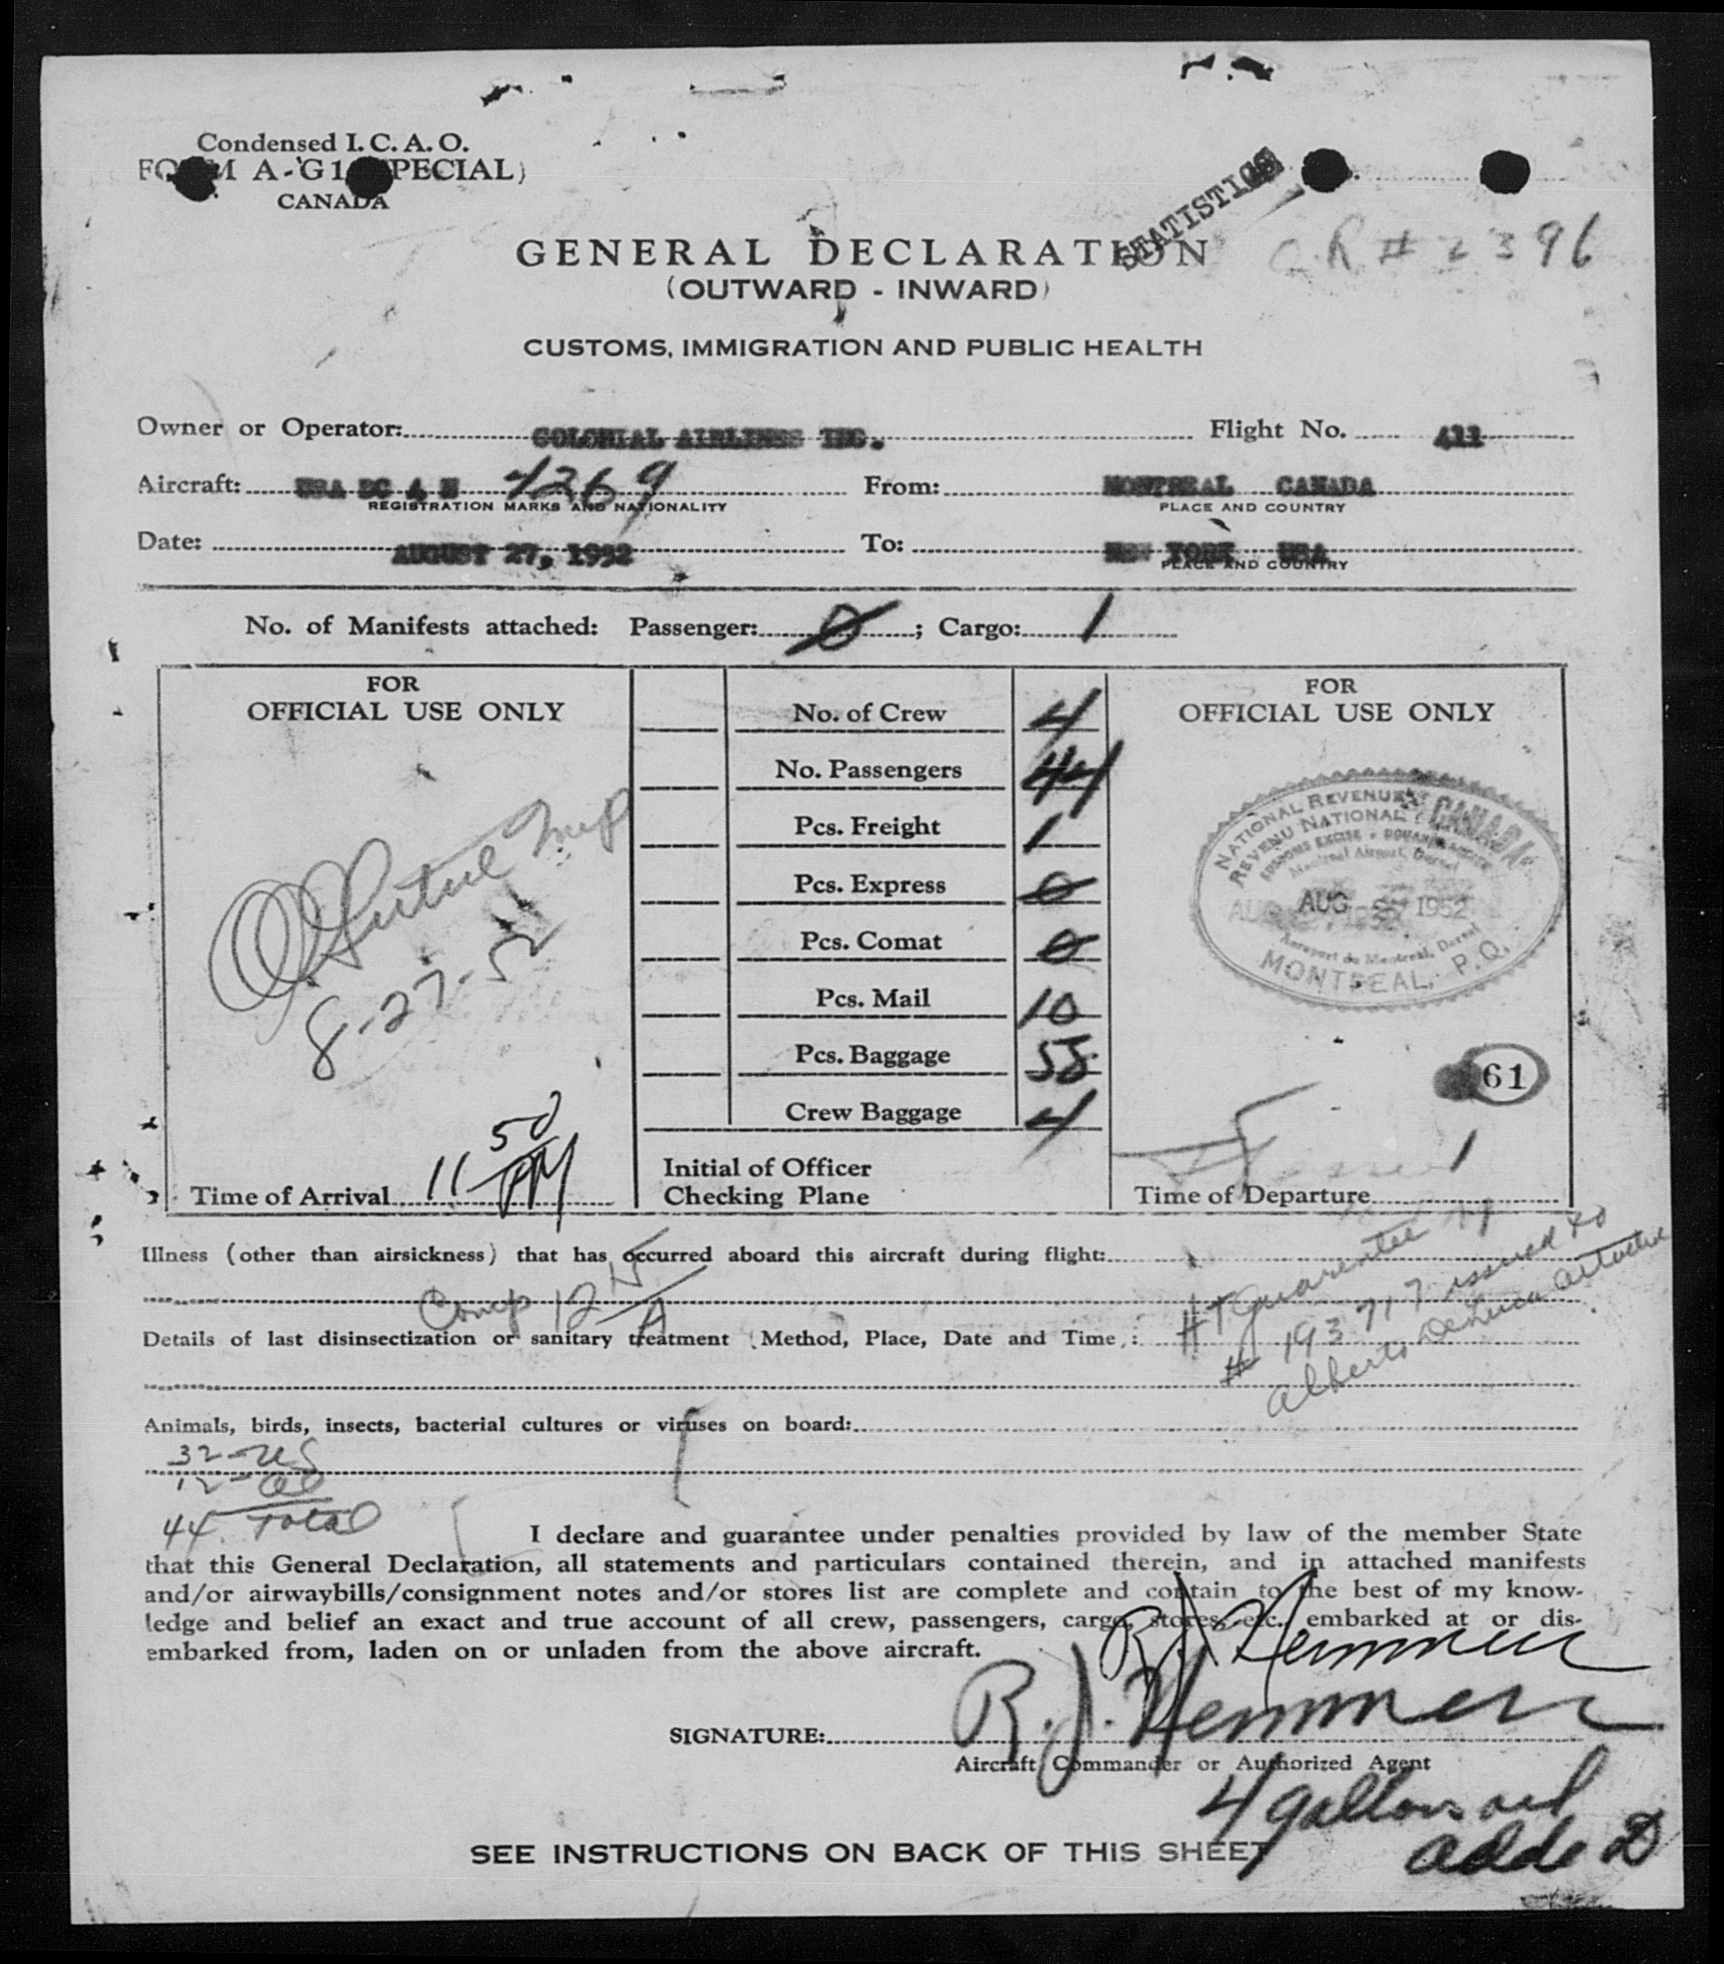 Condensed I. C. A. O.
FORM A-G1 (SPECIAL)
CANADA
STATISTICS
GENERAL DECLARATION
(OUTWARD - INWARD)
# 2396
CUSTOMS, IMMIGRATION AND PUBLIC HEALTH
Owner or Operator: COLONIAL AIRLINES INC. Flight No. 411
Aircraft: USA DC 4 N 4269 From: MONTREAL CANADA
REGISTRATION MARKS AND NATIONALITY PLACE AND COUNTRY
Date: AUGUST 27, 1952 To: NEW YORK USA
PLACE AND COUNTRY
No. of Manifests attached: Passenger: 0; Cargo: 1
FOR
OFFICIAL USE ONLY
8-27-52
Time of Arrival 11 50 PM
No. of Crew 4
No. Passengers 44
Pcs. Freight 1
Pcs. Express 0
Pcs. Comat 0
Pcs. Mail 10
Pcs. Baggage 58
Crew Baggage 4
Initial of Officer
Checking Plane
FOR
OFFICIAL USE ONLY
NATIONAL REVENUE CANADA
REVENU NATIONAL
CUSTOMS EXCISE - DOUANES ACCISE
Montreal Airport, Dorval
AUG 27 1952
Aeroport de Montreal, Dorval
MONTREAL, P.Q.
61
Time of Departure
Illness (other than airsickness) that has occurred aboard this aircraft during flight:
Comp 12 15 A
Guarantee
# 193717 issued to
Alberto DeLuca
Details of last disinsectization or sanitary treatment (Method, Place, Date and Time):
Animals, birds, insects, bacterial cultures or viruses on board:
32-US
12-al
44 Total
I declare and guarantee under penalties provided by law of the member State
that this General Declaration, all statements and particulars contained therein, and in attached manifests
and/or airwaybills/consignment notes and/or stores list are complete and contain to the best of my know-
ledge and belief an exact and true account of all crew, passengers, cargo, stores, etc. embarked at or dis-
embarked from, laden on or unladen from the above aircraft.
SIGNATURE: R. J.
Aircraft Commander or Authorized Agent
4 gallons oil
added
SEE INSTRUCTIONS ON BACK OF THIS SHEET